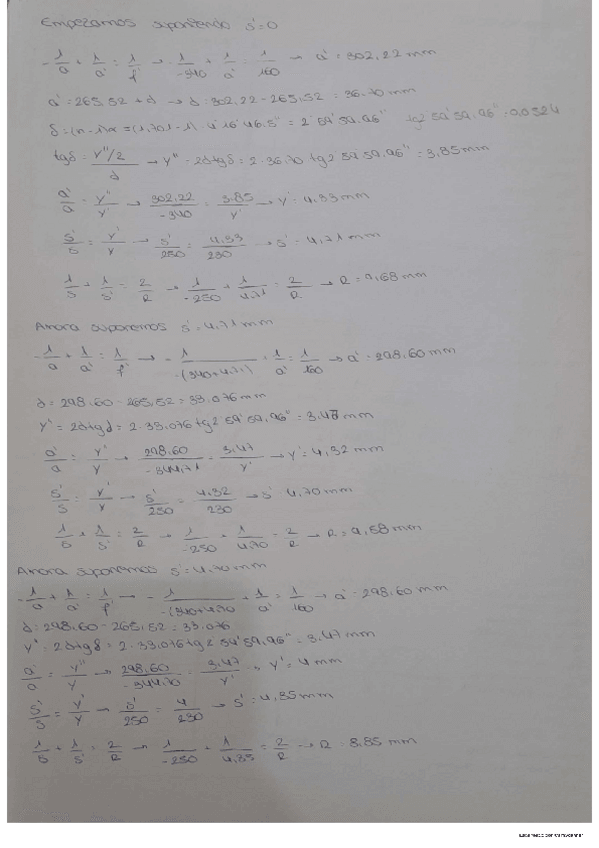 Empezamos suponiendo s'=0
-1/a + 1/a' = 1/f' → -1/-340 + 1/a' = 1/160 → a' = 302,22 mm
a' = 265,52 + d → d = 302,22 - 265,52 = 36,70 mm
δ = (n-1)α = (1,701-1) · 4°16'46,5" = 2°59'59,96" tg2°59'59,96" = 0,0524
tgδ = (y"/2)/d → y" = 2dtgδ = 2·36,70 tg2°59'59,96" = 3,85 mm
a'/a = y"/y' → 302,22/-340 = 3,85/y' → y' = 4,33 mm
s'/s = y'/y → s'/250 = 4,33/230 → s' = 4,71 mm
1/s + 1/s' = 2/R → 1/-250 + 1/4,71 = 2/R → R = 9,68 mm
Ahora suponemos s' = 4,71 mm
-1/a + 1/a' = 1/f' → -1/-(340+4,71) + 1/a' = 1/160 → a' = 298,60 mm
d = 298,60 - 265,52 = 33,076 mm
y' = 2dtgδ = 2·33,076 tg2°59'59,96" = 3,47 mm
a'/a = y'/y → 298,60/-344,71 = 3,47/y' → y' = 4,32 mm
s'/s = y'/y → s'/250 = 4,32/230 → s' = 4,70 mm
1/s + 1/s' = 2/R → 1/-250 + 1/4,70 = 2/R → R = 9,58 mm
Ahora suponemos s' = 4,70 mm
-1/a + 1/a' = 1/f' → -1/-(340+4,70 + 1/a' = 1/160 → a' = 298,60 mm
d = 298,60 - 265,52 = 33,076
y" = 2dtgδ = 2·33,076 tg2°59'59,96" = 3,47 mm
a'/a = y"/y → 298,60/-344,70 = 3,47/y' → y' = 4 mm
s'/s = y'/y → s'/250 = 4/230 → s' = 4,35 mm
1/s + 1/s' = 2/R → 1/-250 + 1/4,35 = 2/R → R = 8,85 mm